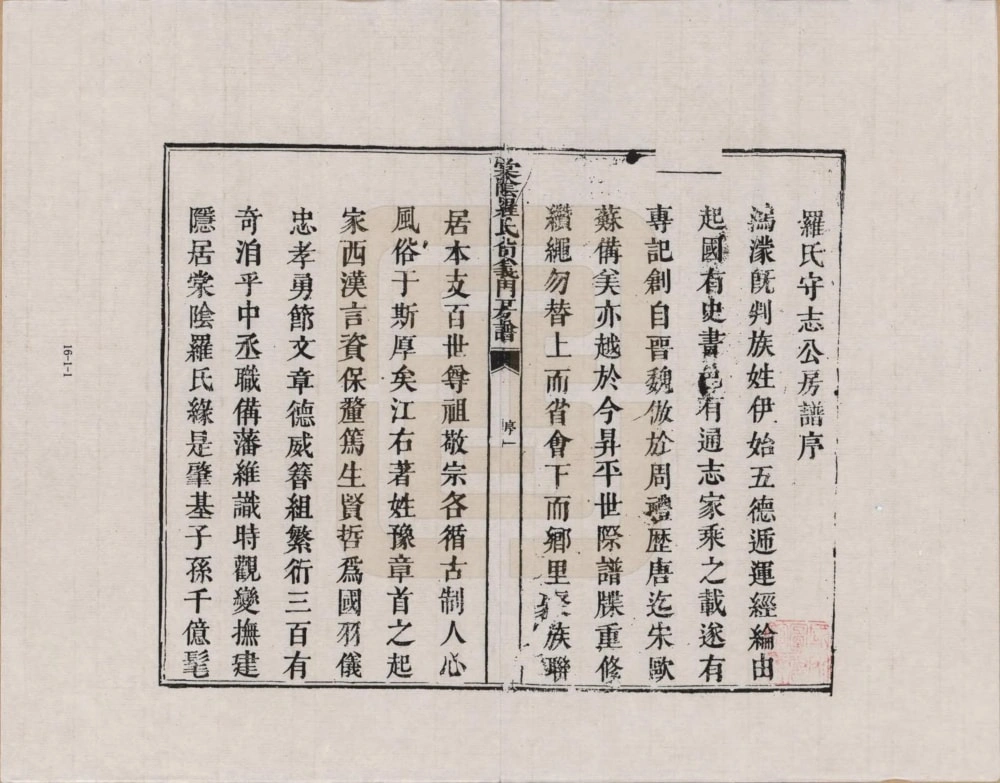 羅氏守志公房譜序
鴻濛旣判族姓伊始五德遁運經綸由
起國有史書邑有通志家乘之載遂有
專記創自晋魏倣於周禮歷唐迄宋歐
蘇備矣亦越於今昇平世際譜牒重修
纘繩勿替上而省會下而鄉里聚族聯
棠陰羅氏尚義門房譜
序一
居本支百世尊祖敬宗各循古制人心
風俗于斯厚矣江右著姓豫章首之起
家西漢言資保釐篤生賢哲爲國羽儀
忠孝勇節文章德威簪組繁衍三百有
奇洎乎中丞職備藩維識時觀變撫建
隱居棠陰羅氏緣是肇基子孫千億髦
16-1-1